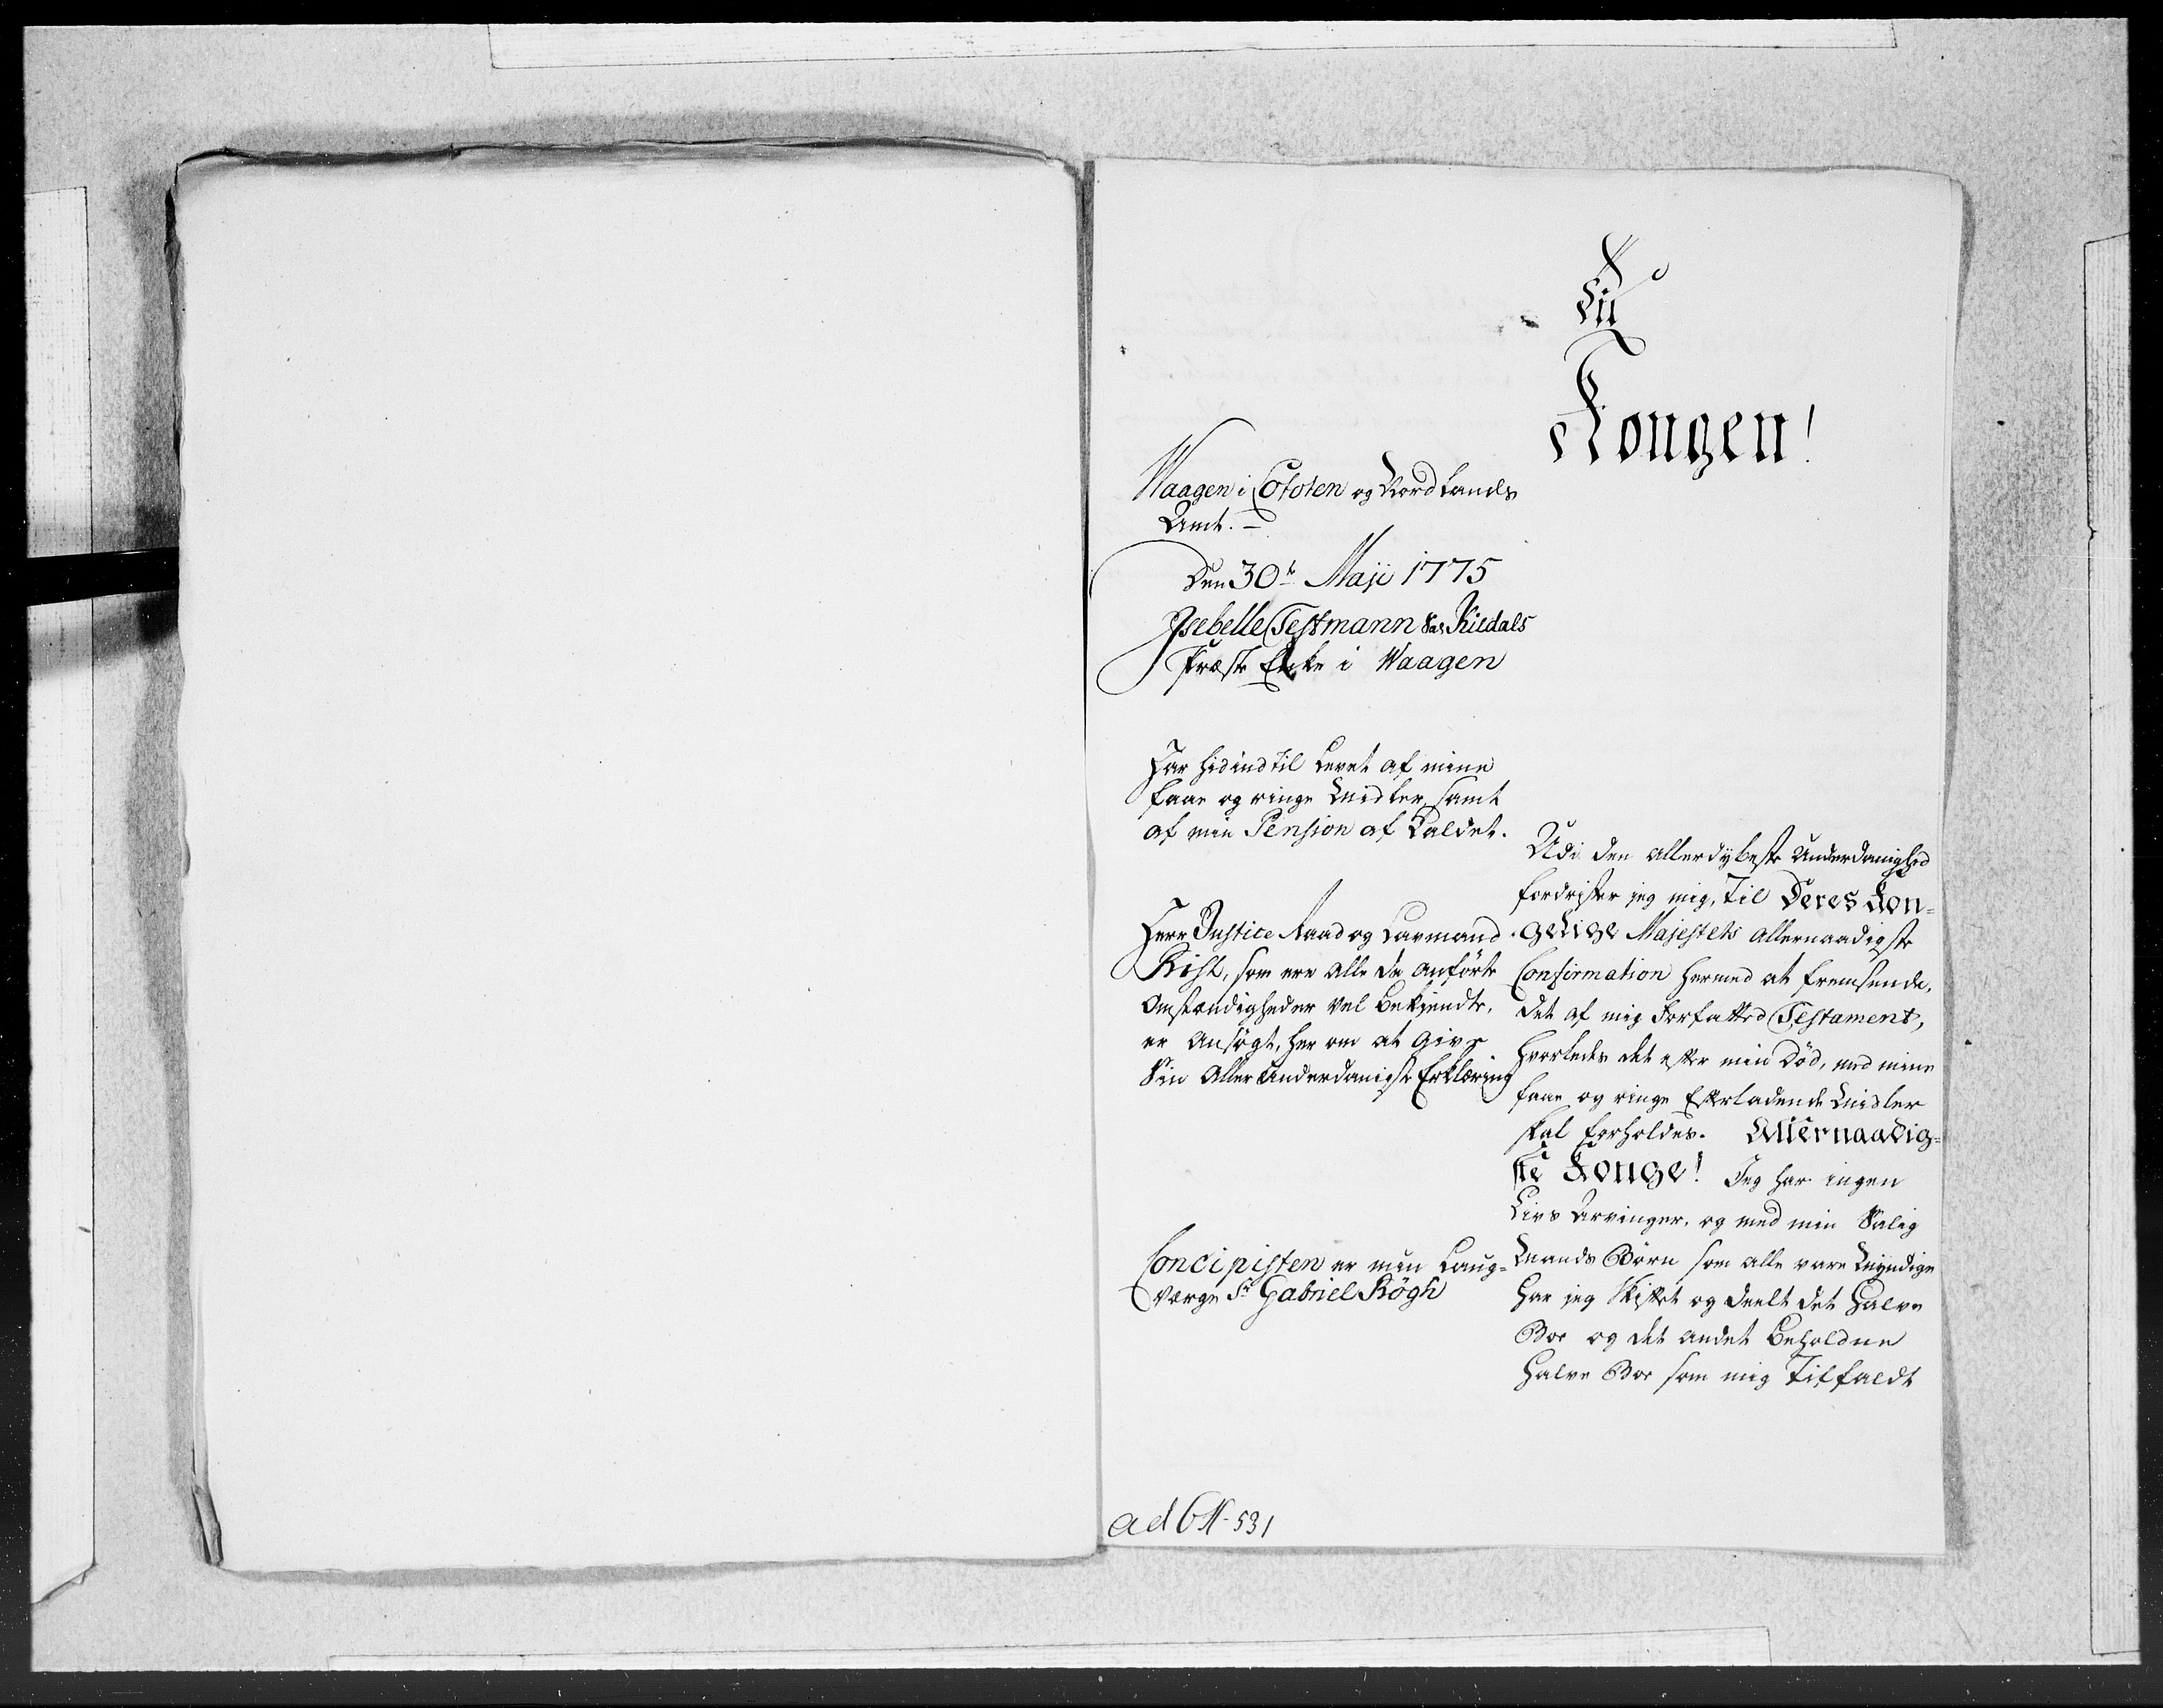 Til
Kongen!
Waagen i Lofoten og Nordlands
Amt.
Den 30te Maji 1775
Isebelle Testmann Sal. Kildals
Præste Enke i Waagen
Har hidindtil Levet af mine
faae og ringe Midler, samt
af min Pension af Kaldet.
Herr Justice Raad og Laumand
Rist, som ere alle de anførte
Omstændigheder vel bekiendte,
er ansøgt, her om at give
Sin Aller Underdanigste Erklæring
Concipisten er min Laug-
værge Sr Gabriel Røgh
Udi den allerdybeste Underdanighed
fordrister jeg mig, til Deres Kon-
gelige Majestets allernaadigste
Confirmation hermed at fremsende,
det af mig forfatted Testament,
hvorledes det efter min Død, med mine
faae og ringe Efterladende Midler
skal forholdes. Allernaadig-
ste Konge! Jeg har ingen
Livs Arvinger, og med min Salig
Mands Børn som alle vare Myndige
har jeg skiftet og deelt det halve
Boe og det andet beholdne
halve Boe som mig tilfaldt
ad 531